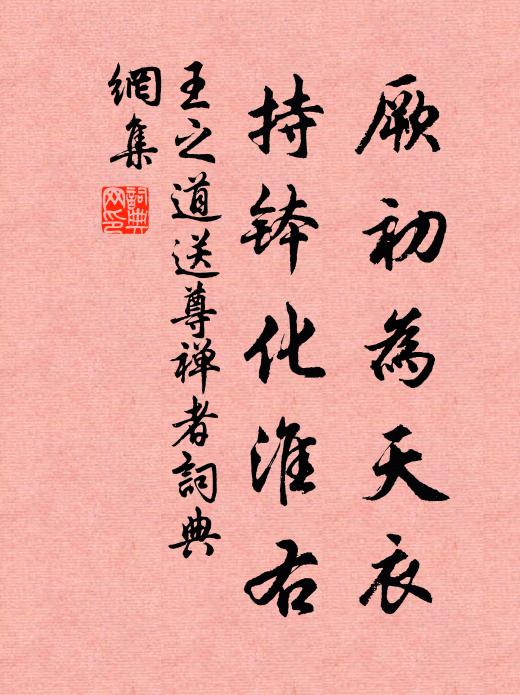 厥初為天衣
持鉢化淮右
王之道送尊禪者詞典
網集
詞典網印